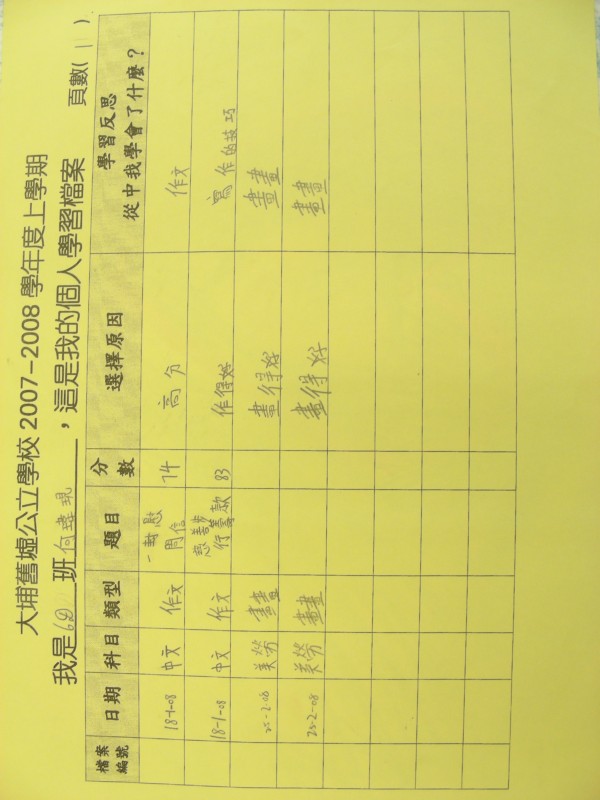 大埔舊墟公立學校 2007-2008 學年度上學期
我是 6D 班 ，這是我的個人學習檔案 頁數( 1 )
檔案編號 日期 科目 類型 題目 分數 選擇原因 學習反思 從中我學會了什麼？
18-1-08 中文 作文 一封慰問信 74 高分 作文
18-1-08 中文 作文 慈善步行籌款 83 作得好 寫作的技巧
25-2-08 美勞 畫畫 畫得好 畫畫
25-2-08 美勞 畫畫 畫得好 畫畫